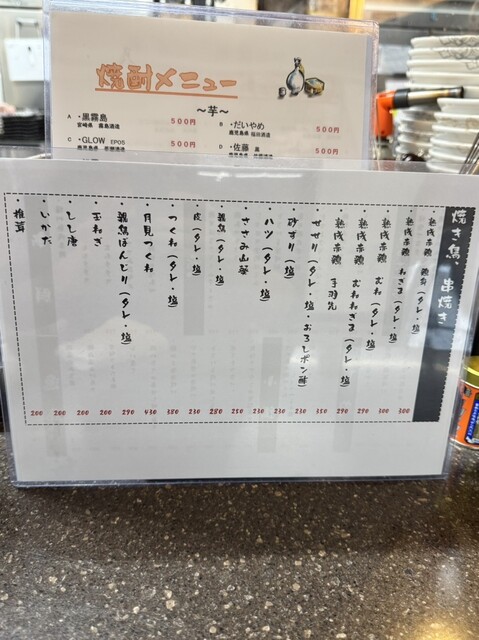 焼酎メニュー
～芋～
A ・黒霧島 500円
宮崎県 霧島酒造
B ・だいやめ 500円
鹿児島県 濵田酒造
C ・GLOW EP05 500円
鹿児島県
D ・佐藤 黒 500円
鹿児島県
焼き鳥、串焼き
・熟成赤鶏 (タレ・塩) 300
・熟成赤鶏 ねぎま(タレ・塩) 300
・熟成赤鶏 むね(タレ・塩) 290
・熟成赤鶏 むねねぎま(タレ・塩) 290
・熟成赤鶏 手羽先 350
・せせり(タレ・塩・おろしポン酢) 230
・砂ずり(塩) 230
・ハツ(タレ・塩) 230
・ささみ山葵 250
・親鳥(タレ・塩) 280
・皮(タレ・塩) 230
・つくね(タレ・塩) 380
・月見つくね 430
・親鳥ぼんじり(タレ・塩) 290
・玉ねぎ 200
・しし唐 200
・いかだ 200
・椎茸 200